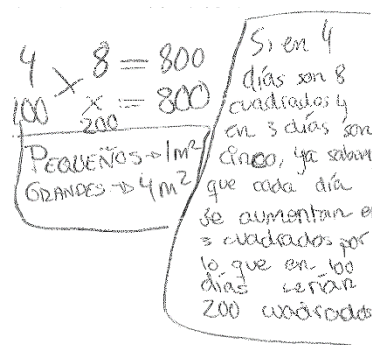 4 8 = 800
100 x = 800
200
PEQUEÑOS → 1m²
GRANDES → 4m²
Si en 4
días son 8
cuadrados y
en 3 días son
cinco, ya sabem
que cada día
se aumentan e
3 cuadrados por
lo que en 100
días serían
200 cuadrados